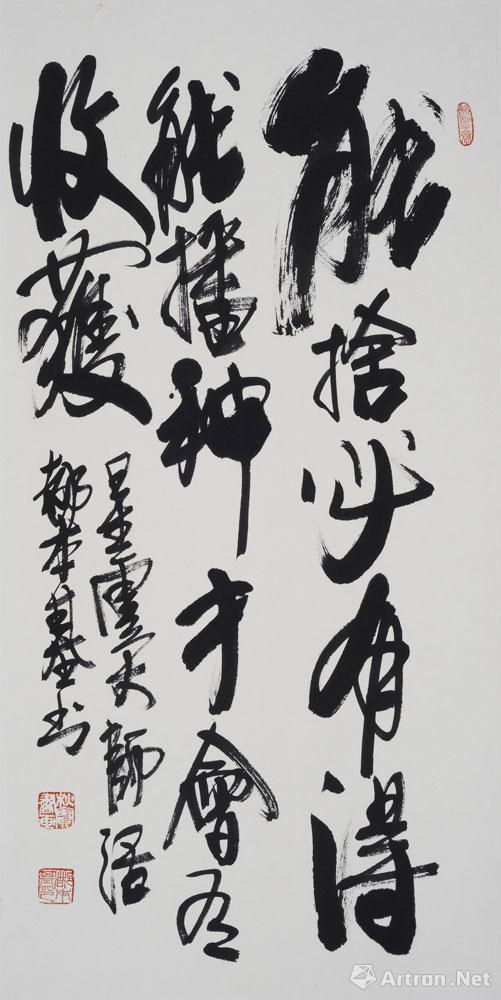 能捨必有得
能播种才會有
收獲
星雲大師語
都本基书
Artron.Net